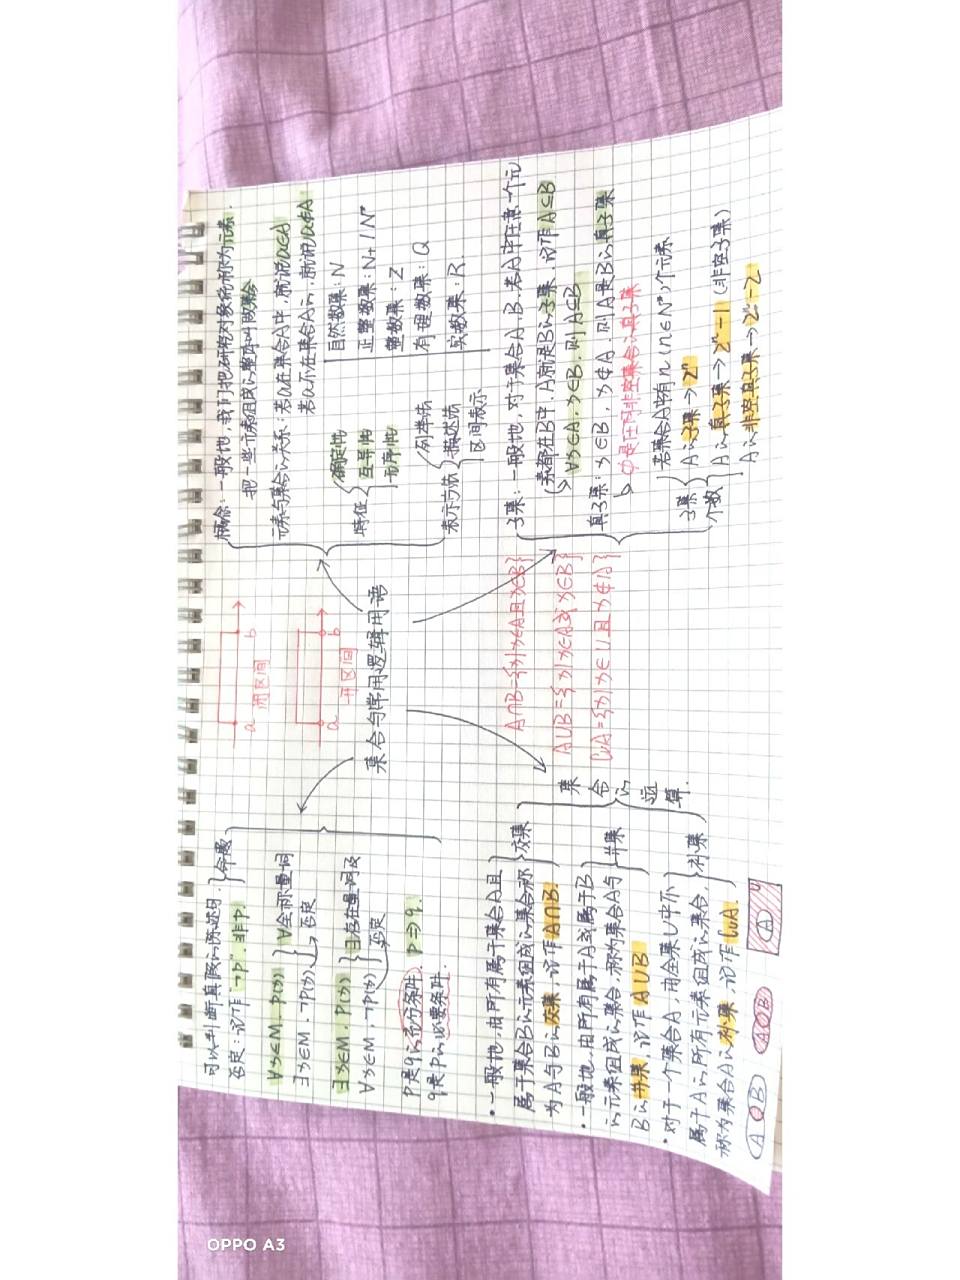 集合与常用逻辑用语
概念：一般地，我们把研究对象统称为元素．
把一些元素组成的整体叫做集合
元素与集合的关系：若a在集合A中，就说a∈A
若a不在集合A中，就说a∉A
特征
确定性
互异性
无序性
表示方法
列举法
描述法
区间表示
自然数集：N
正整数集：N+ / N*
整数集：Z
有理数集：Q
实数集：R
子集：一般地，对于集合A、B，若A中任意一个元
素都在B中，A就是B的子集，记作A⊆B
∀x∈A，x∈B，则A⊆B
真子集：x∈B，x∉A，则A是B的真子集
∅是任何非空集合的真子集
子集
个数
若集合A中有n(n∈N*)个元素
A的子集→2ⁿ
A的真子集→2ⁿ-1(非空子集)
A的非空真子集→2ⁿ-2
a b
闭区间
a b
开区间
可以判断真假的陈述句．
命题
否定：记作"¬p"．非p
∀x∈M，P(x)
∃x∈M，¬P(x)
∀全称量词
否定
∃x∈M，P(x)
∀x∈M，¬P(x)
∃存在量词及
否定
p是q的充分条件．p⇒q．
q是p的必要条件．
集合的运算．
A∩B={x|x∈A且x∈B}
A∪B={x|x∈A或x∈B}
∁uA={x|x∈U且x∉A}
·一般地，由所有属于集合A且
属于集合B的元素组成的集合称
为A与B的交集，记作A∩B．
交集
·一般地，由所有属于A或属于B
的元素组成的集合，称为集合A与
B的并集，记作A∪B
并集
·对于一个集合A，由全集U中不
属于A的所有元素组成的集合，
称为集合A的补集，记作∁uA．
补集
A B
A B
A
OPPO A3